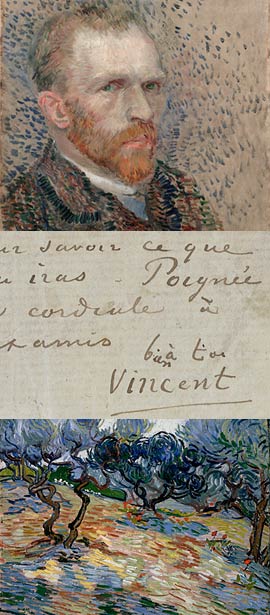 ur savoir ce que
u iras - Poignée
cordiale à
x amis
b.. à toi
Vincent